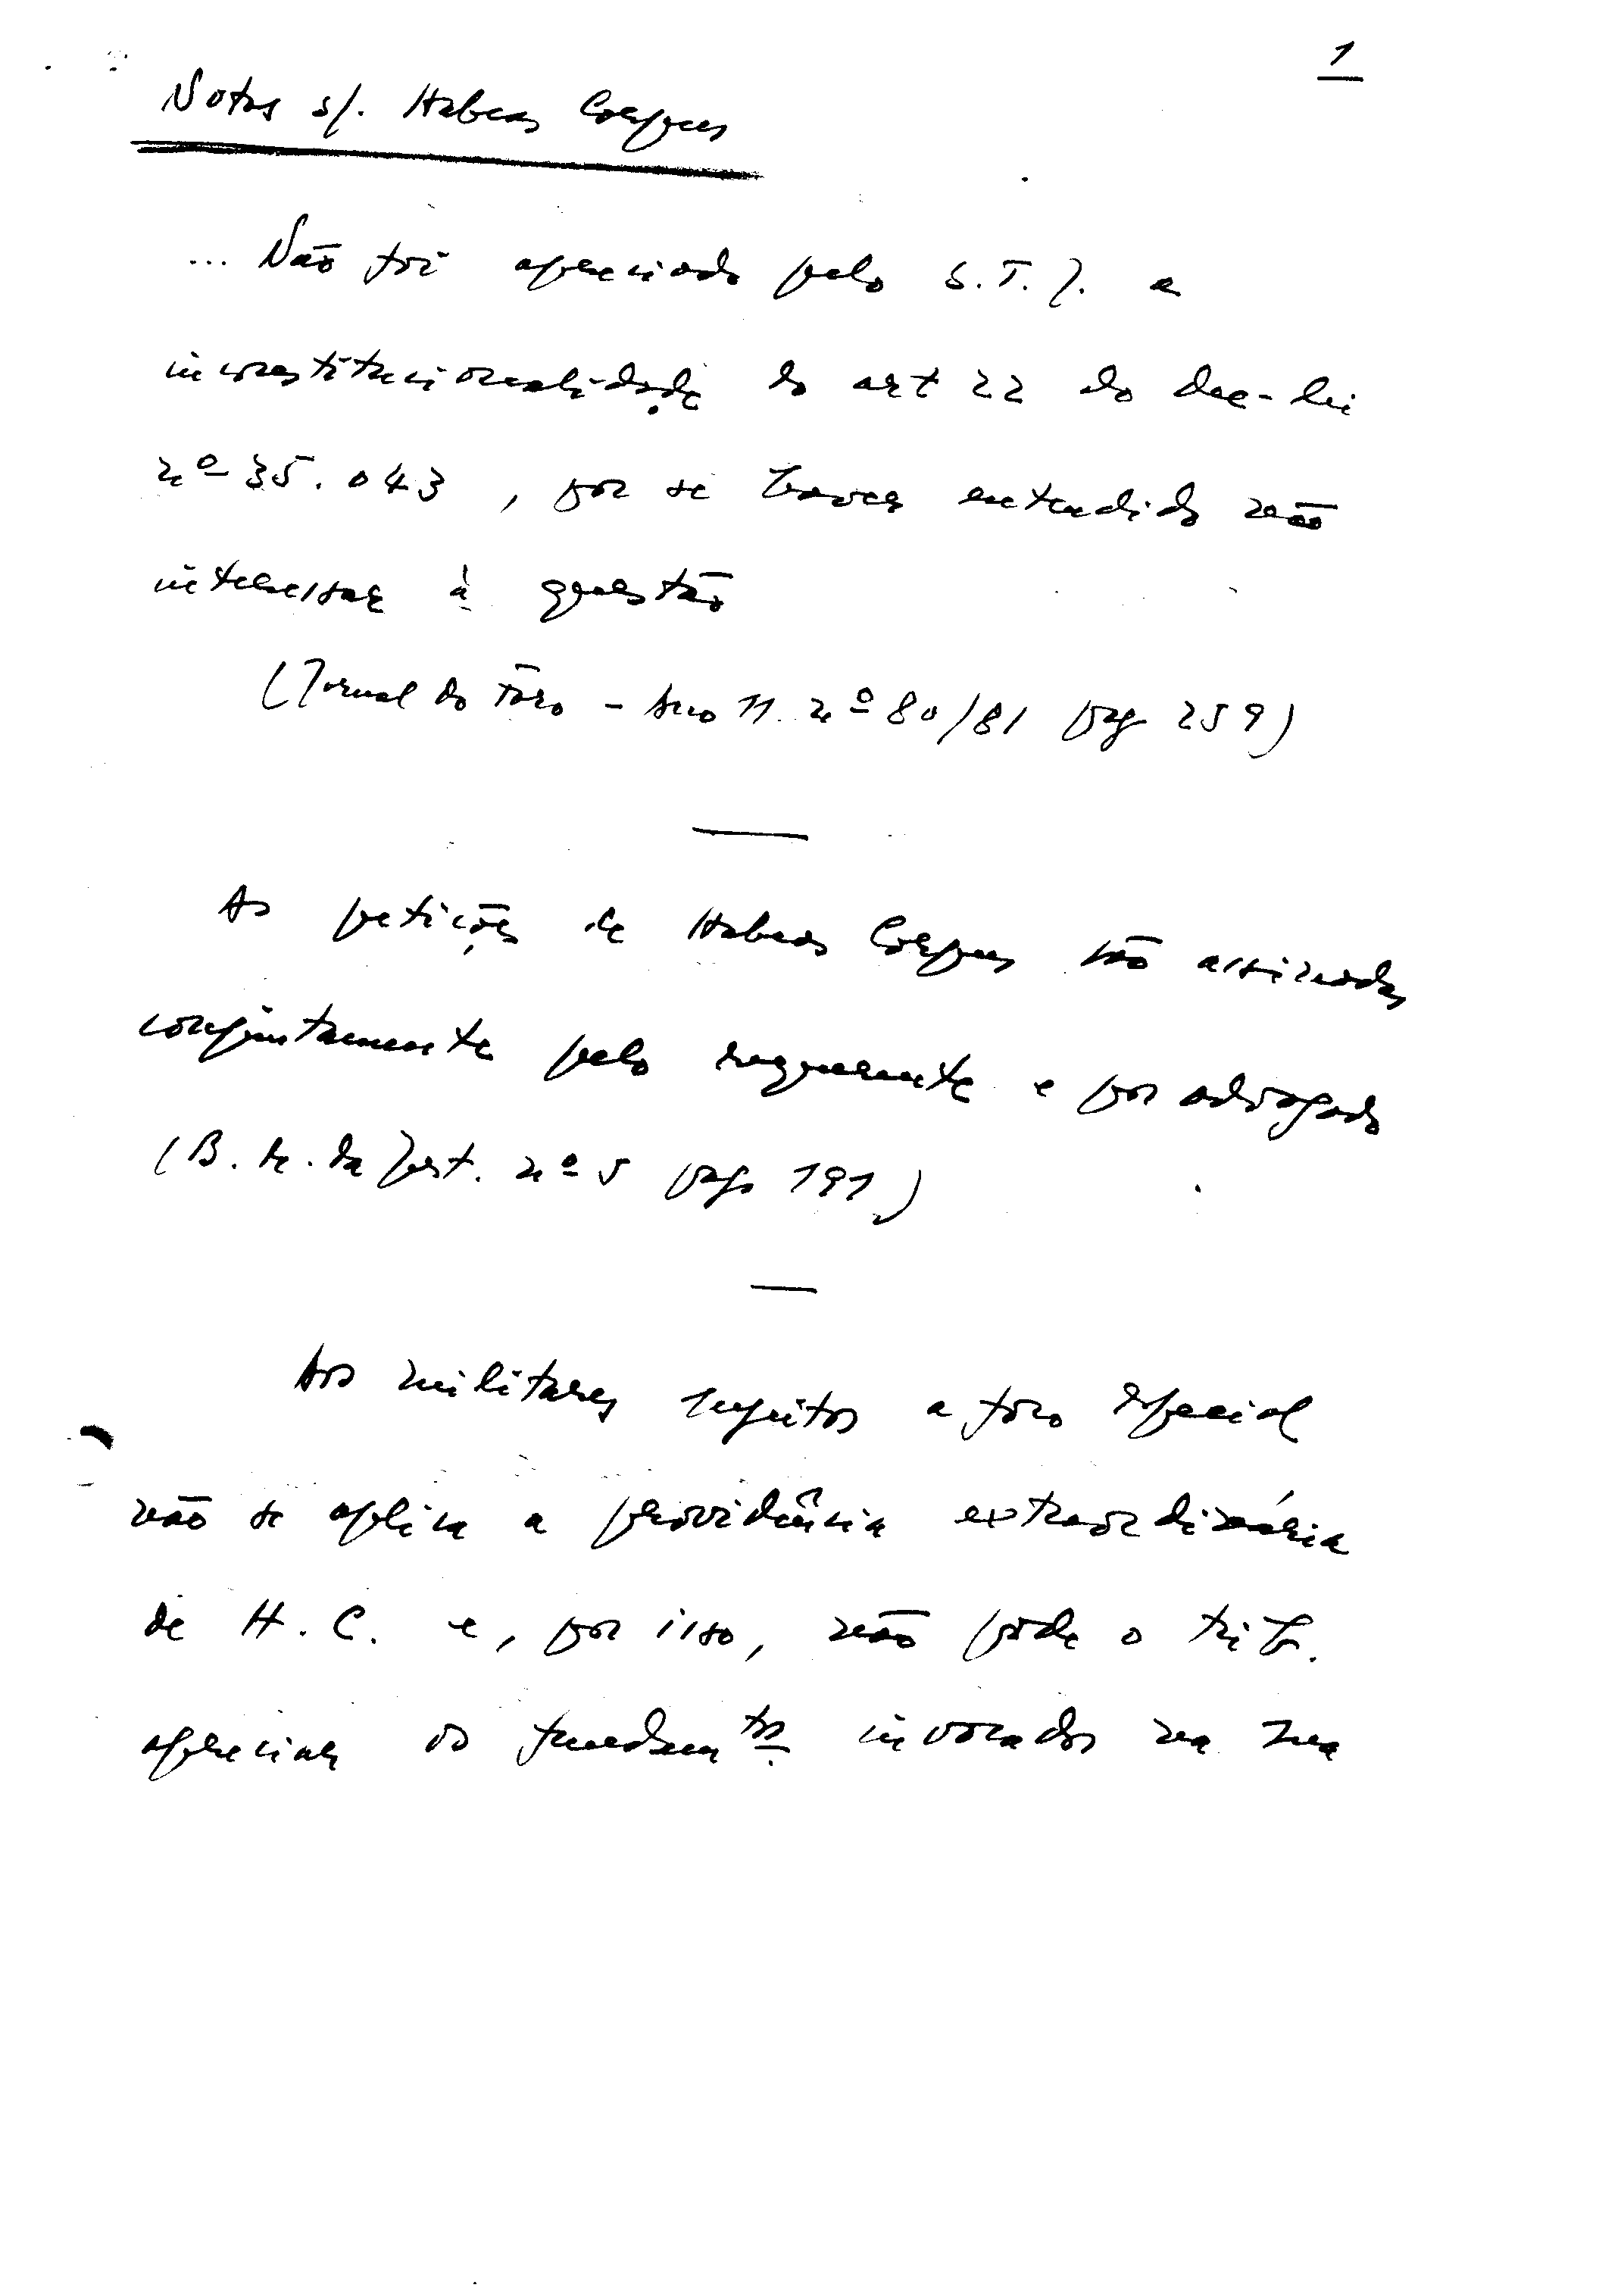 1
Notas s/. Habeas Corpus
... Não foi apreciado pelo S.T.J. a
inconstitucionalidade do art 22 do Dec-lei
nº 35.043, por se haver entendido não
interessar à questão
(Jornal do Fôro - Ano 11. nº 80/81 pag 259)
As petições de Habeas Corpus são assinadas
conjuntamente pelo requerente e por advogado
(B. M. da Just. nº 5 pag 191)
Aos militares sujeitos a foro especial
não se aplica a providência extraordinária
de H. C. e, por isso, não pode o trib.
apreciar os fundamtos invocados na sua